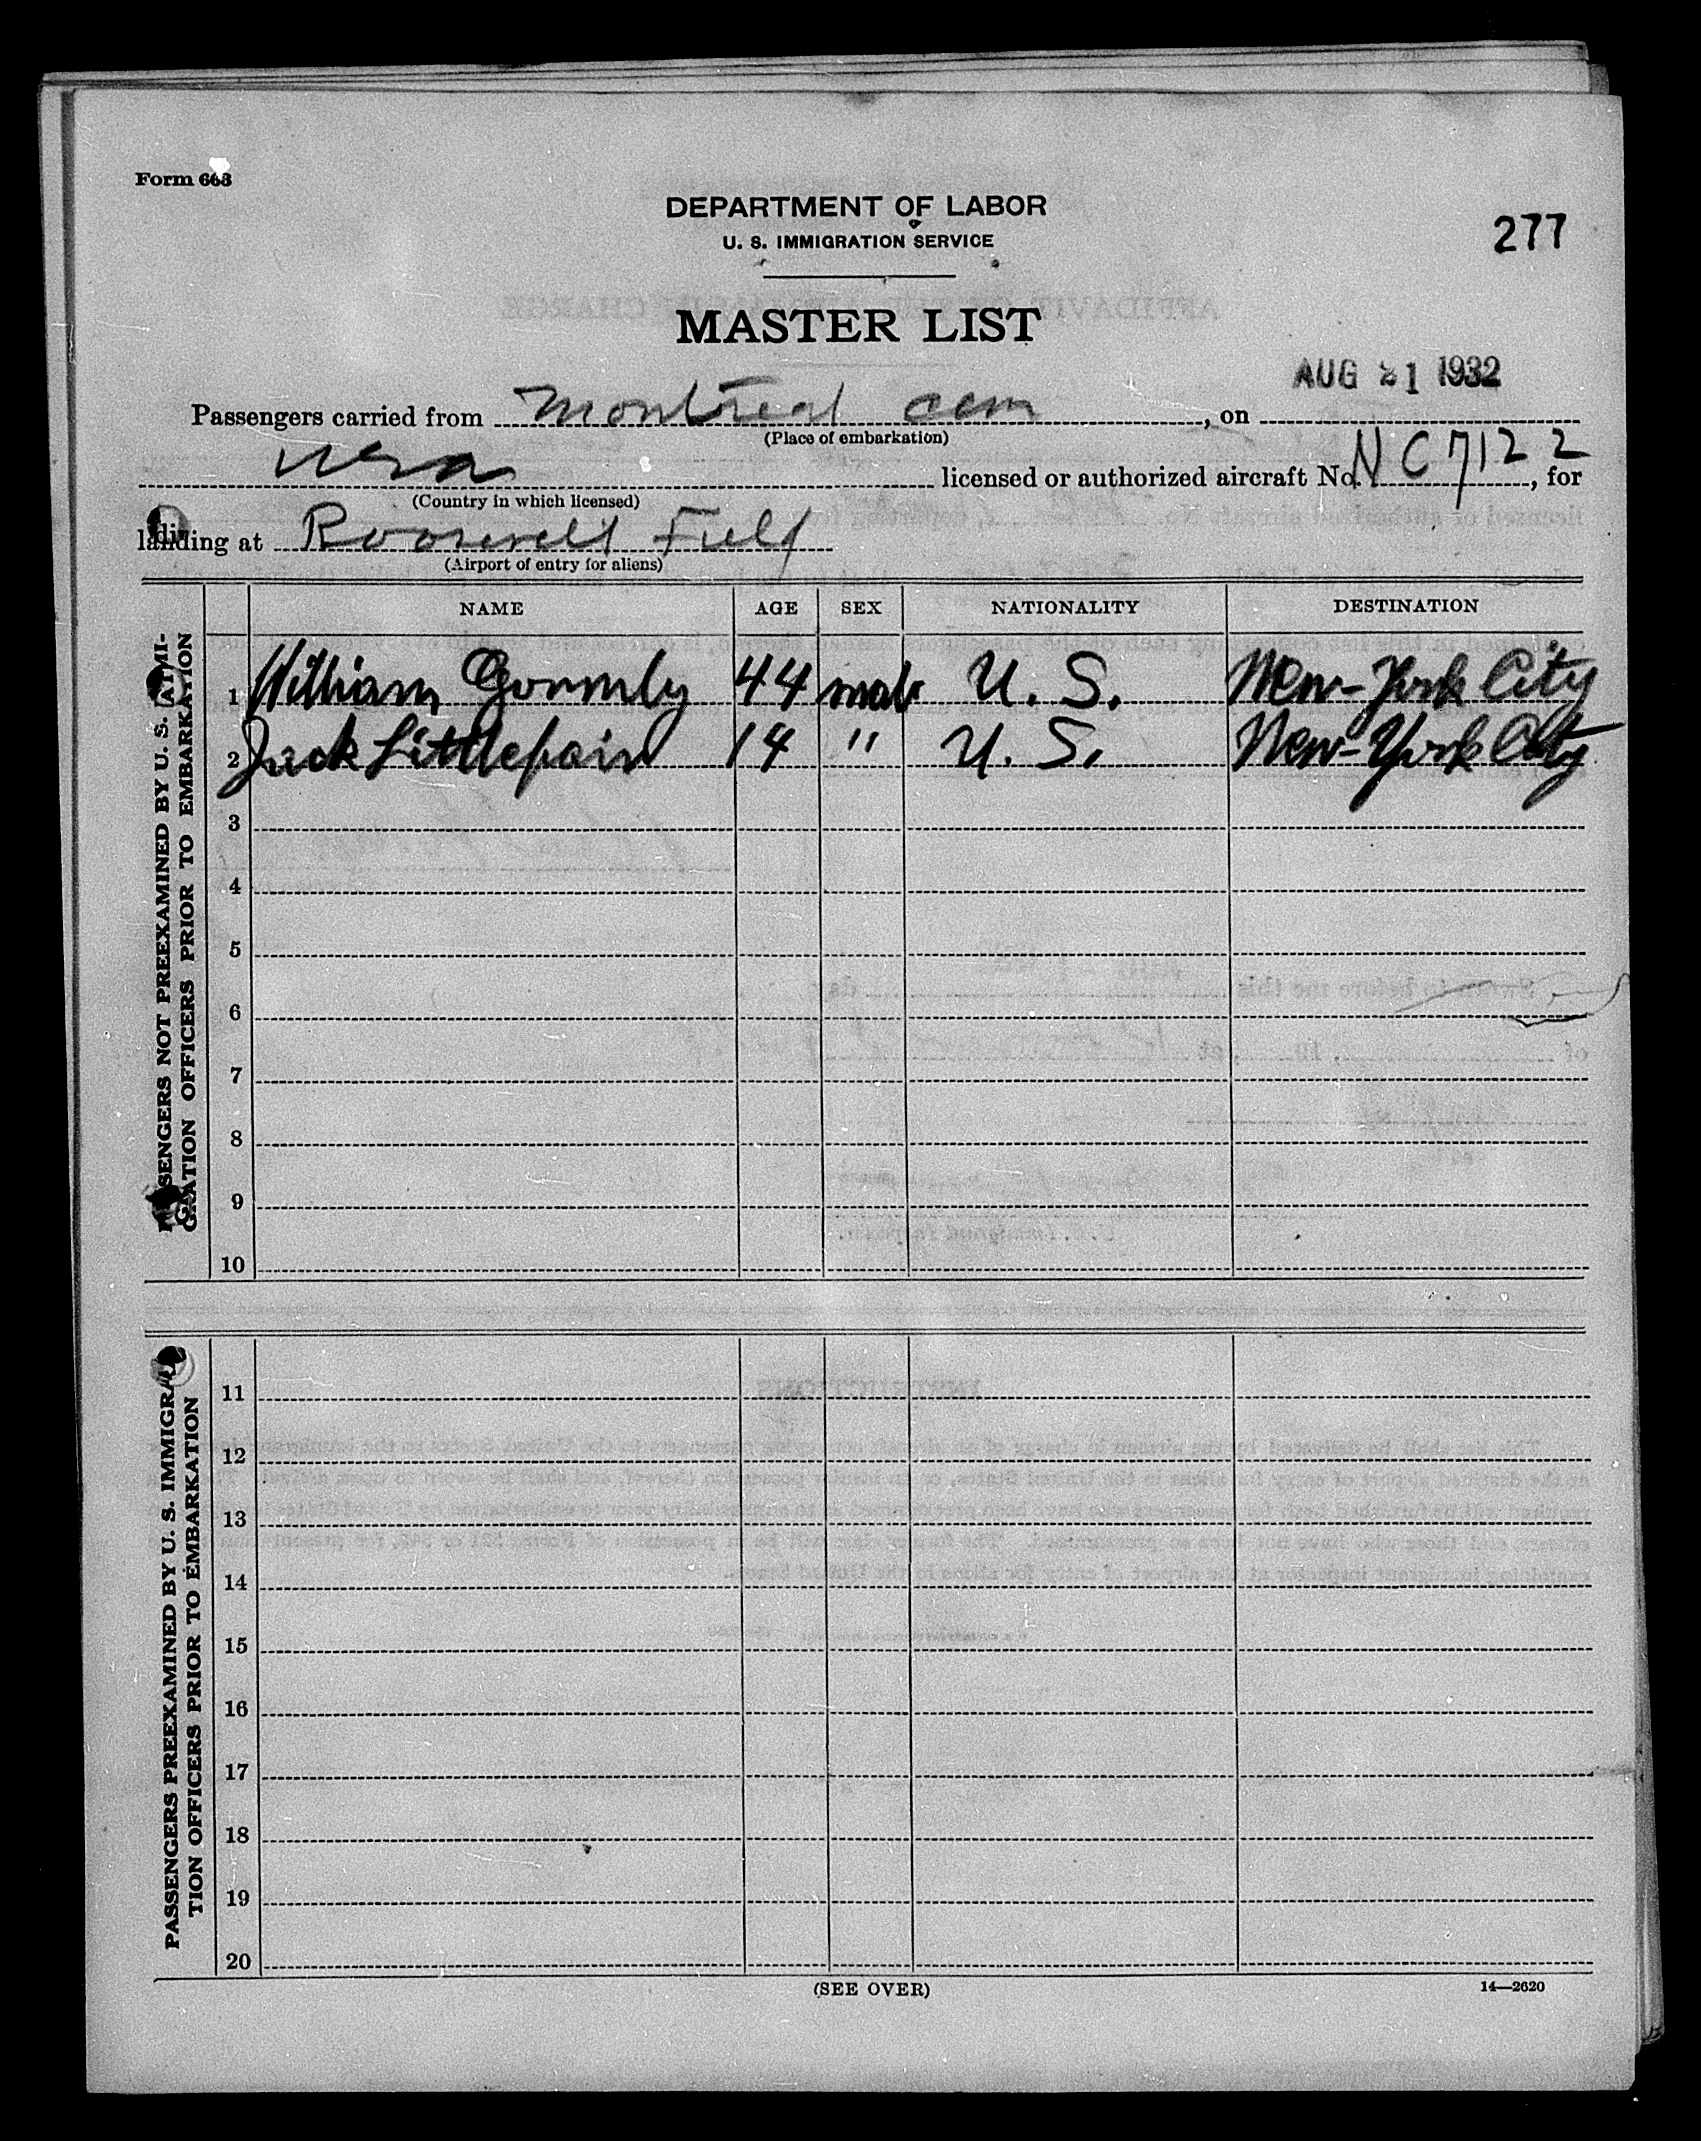 Form 663
DEPARTMENT OF LABOR
U. S. IMMIGRATION SERVICE
277
MASTER LIST
AUG 21 1932
Passengers carried from Montreal can, on
(Place of embarkation)
usa licensed or authorized aircraft No. NC7122, for
(Country in which licensed)
landing at Roosevelt Field
(Airport of entry for aliens)
NAME AGE SEX NATIONALITY DESTINATION
PASSENGERS NOT PREEXAMINED BY U. S. IMMI-
GRATION OFFICERS PRIOR TO EMBARKATION
1 William Gormly 44 male U. S. New-York City
2 Jack Littlefair 14 " U. S. New-York City
3
4
5
6
7
8
9
10
PASSENGERS PREEXAMINED BY U. S. IMMIGRA-
TION OFFICERS PRIOR TO EMBARKATION
11
12
13
14
15
16
17
18
19
20
(SEE OVER)
14—2620